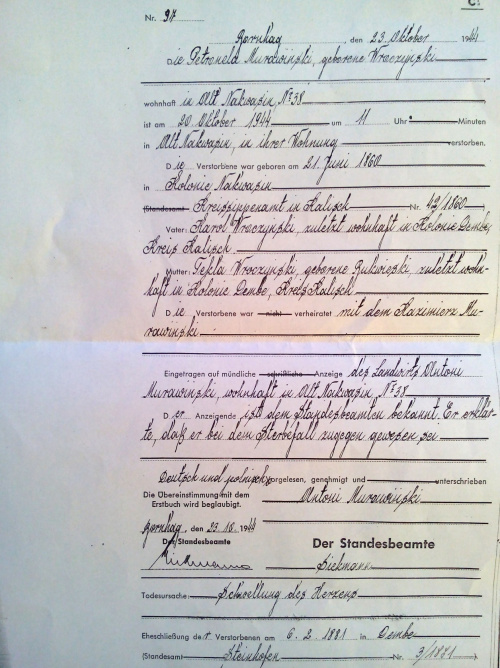 C.
Nr. 97
Bornhag, den 23. Oktober 1944
Die Petronela Murawinski, geborene Wroczynski
wohnhaft in Alt Nakwasin, No 38
ist am 20. Oktober 1944 um 11 Uhr Minuten
in Alt Nakwasin, in ihrer Wohnung verstorben.
Die Verstorbene war geboren am 21. Juni 1860
in Kolonie Nakwasin
(Standesamt Kreissippenamt in Kalisch Nr. 42/1860
Vater: Karol Wroczynski, zuletzt wohnhaft in Kolonie Dembe,
Kreis Kalisch
Mutter: Tekla Wroczynski, geborene Rukwieski, zuletzt wohn-
haft in Kolonie Dembe, Kreis Kalisch
Die Verstorbene war nicht verheiratet mit dem Kazimierz Mu-
rawinski
Eingetragen auf mündliche schriftliche Anzeige des Landwirts Antoni
Murawinski, wohnhaft in Alt Nakwasin, No 38
Der Anzeigende ist dem Standesbeamten bekannt. Er erklär-
te, daß er bei dem Sterbefall zugegen gewesen sei
Deutsch und polnisch vorgelesen, genehmigt und unterschrieben
Die Übereinstimmung mit dem
Erstbuch wird beglaubigt.
Antoni Murawinski
Bornhag, den 23.10.1944
Der Standesbeamte
Der Standesbeamte
Diekmann
Todesursache: Schwellung des Herzens
Eheschließung der Verstorbenen am 6. 2. 1881 in Dembe
(Standesamt Steinhofen Nr. 3/1881